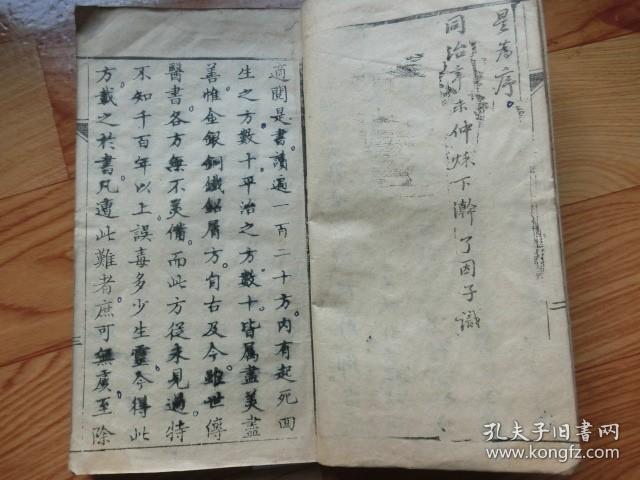 是為序。
同治辛未仲秋下澣了因子識
適閱是書。讀過一百二十方。內有起死回
生之方數十。平治之方數十。皆屬盡美盡
善。惟金銀銅鐵鉛屑方。自古及今。雖世傳
醫書各方。無不美備。而此方從未見過。特
不知千百年以上。誤毒多少生靈。今得此
方載之於書。凡遭此難者。庶可無虞。至除
三
二
孔夫子旧书网
www.kongfz.com